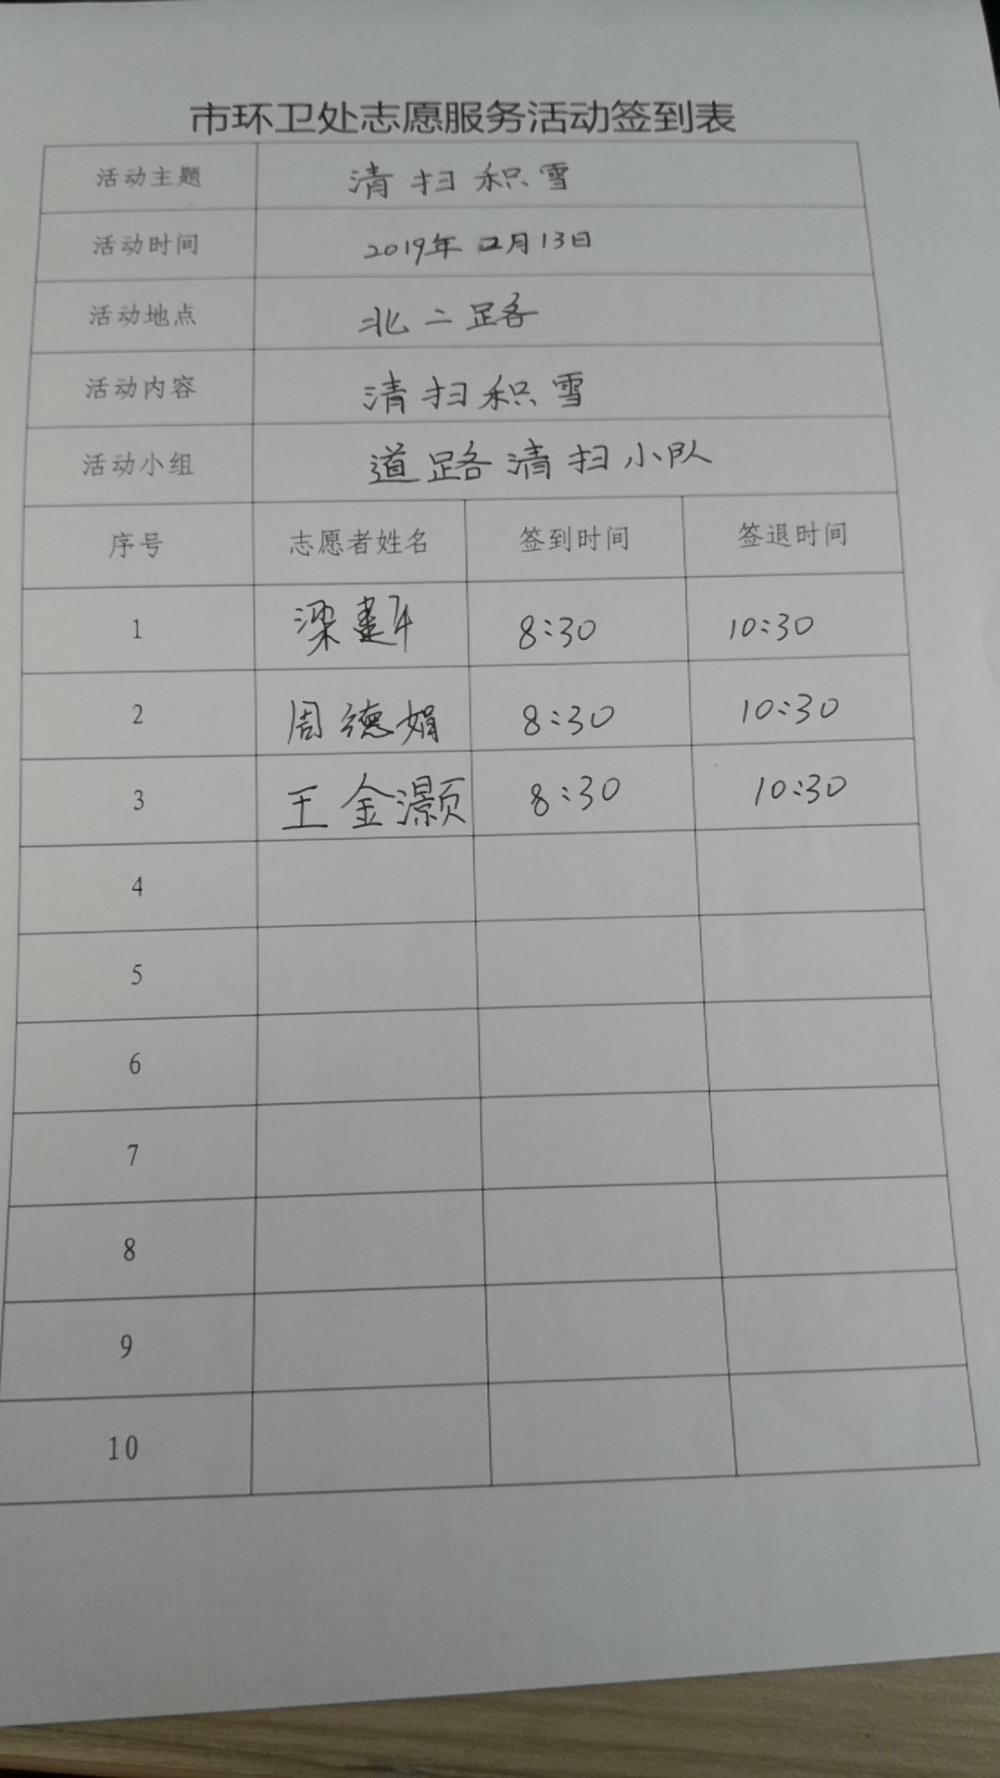 市环卫处志愿服务活动签到表
活动主题 清扫积雪
活动时间 2019年2月13日
活动地点 北二路
活动内容 清扫积雪
活动小组 道路清扫小队
序号 志愿者姓名 签到时间 签退时间
1 梁 8:30 10:30
2 周德娟 8:30 10:30
3 王金灏 8:30 10:30
4
5
6
7
8
9
10